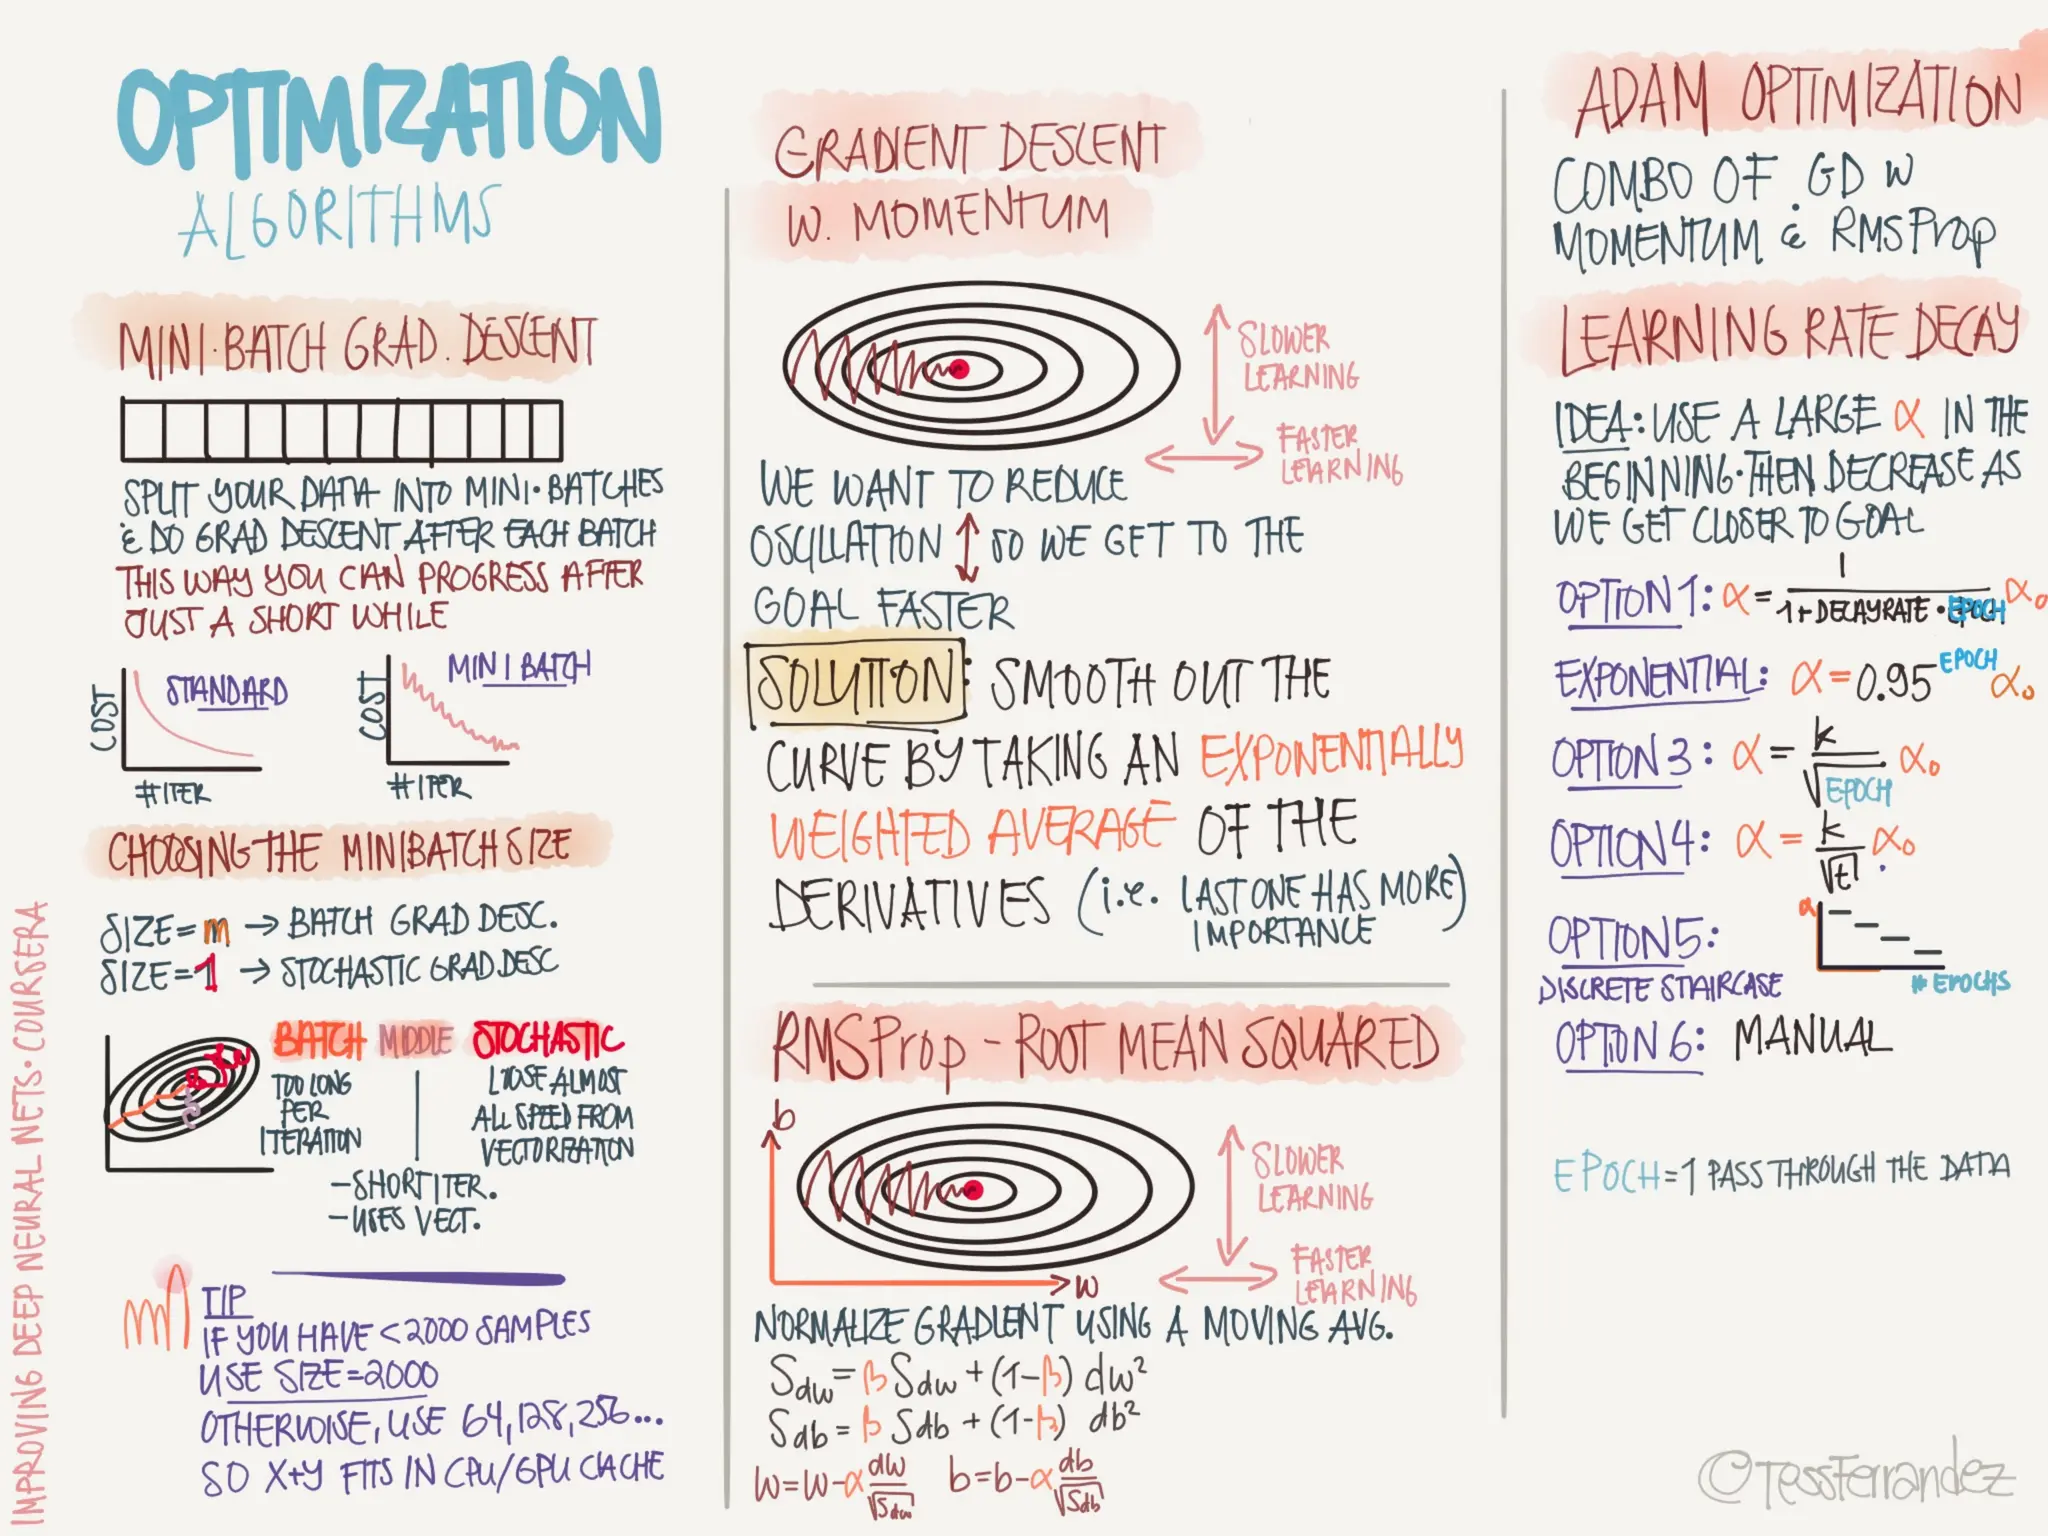 OPTIMIZATION
ALGORITHMS
MINI·BATCH GRAD. DESCENT
SPLIT YOUR DATA INTO MINI·BATCHES
& DO GRAD DESCENT AFTER EACH BATCH
THIS WAY YOU CAN PROGRESS AFTER
JUST A SHORT WHILE
COST
STANDARD
# ITER
COST
MINI BATCH
# ITER
CHOOSING THE MINIBATCH SIZE
SIZE = m → BATCH GRAD DESC.
SIZE = 1 → STOCHASTIC GRAD.DESC
BATCH MIDDLE STOCHASTIC
TOO LONG
PER
ITERATION
LOOSE ALMOST
ALL SPEED FROM
VECTORIZATION
- SHORT ITER.
- USES VECT.
TIP
IF YOU HAVE < 2000 SAMPLES
USE SIZE = 2000
OTHERWISE, USE 64, 128, 256...
SO X+Y FITS IN CPU/GPU CACHE
IMPROVING DEEP NEURAL NETS · COURSERA
GRADIENT DESCENT
W. MOMENTUM
SLOWER
LEARNING
FASTER
LEARNING
WE WANT TO REDUCE
OSCILLATION ↕ SO WE GET TO THE
GOAL FASTER
SOLUTION: SMOOTH OUT THE
CURVE BY TAKING AN EXPONENTIALLY
WEIGHTED AVERAGE OF THE
DERIVATIVES (i.e. LAST ONE HAS MORE
IMPORTANCE)
RMSProp - ROOT MEAN SQUARED
b
w
SLOWER
LEARNING
FASTER
LEARNING
NORMALIZE GRADIENT USING A MOVING AVG.
Sdw = β Sdw + (1-β) dw²
Sdb = β Sdb + (1-β) db²
w = w - α dw/√Sdw b = b - α db/√Sdb
ADAM OPTIMIZATION
COMBO OF GD W
MOMENTUM & RMSProp
LEARNING RATE DECAY
IDEA: USE A LARGE α IN THE
BEGINNING · THEN DECREASE AS
WE GET CLOSER TO GOAL
OPTION 1: α = 1/(1 + DECAYRATE · EPOCH) α₀
EXPONENTIAL: α = 0.95^EPOCH α₀
OPTION 3: α = k/√EPOCH · α₀
OPTION 4: α = k/√t · α₀
OPTION 5:
DISCRETE STAIRCASE
α
# EPOCHS
OPTION 6: MANUAL
EPOCH = 1 PASS THROUGH THE DATA
@TessFerrandez